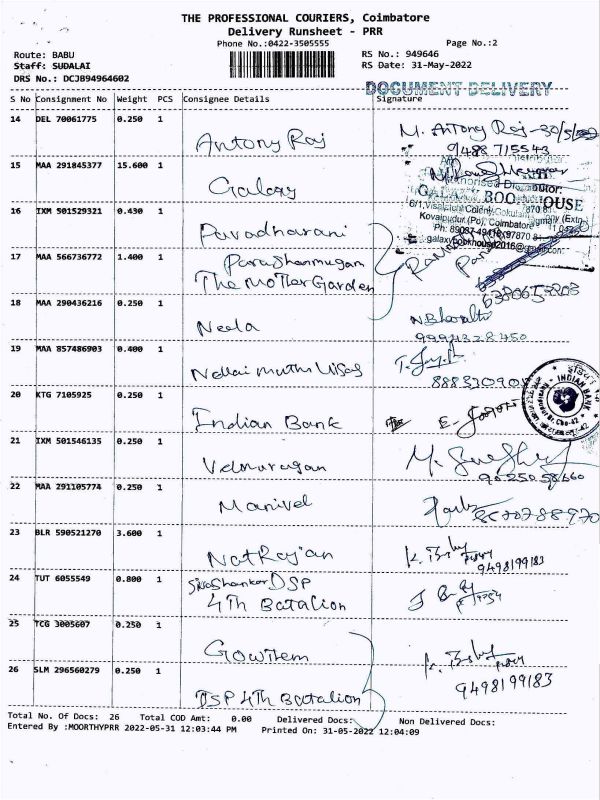 THE PROFESSIONAL COURIERS, Coimbatore
Delivery Runsheet - PRR
Phone No.:0422-3505555
Page No.:2
Route: BABU
RS No.: 949646
Staff: SUDALAI
RS Date: 31-May-2022
DRS No.: DCJB94964602
DOCUMENT DELIVERY
S No Consignment No Weight PCS Consignee Details Signature
14 DEL 70061775 0.250 1 Antony Raj M. Antony Raj
9488715543
15 MAA 291845377 15.600 1 Galaxy
GALAXY BOO OUSE
Kovaipudur (Po), Coimbatore
galaxybookhouse2016@
16 IXM 501529321 0.430 1 Pavadharani
17 MAA 566736772 1.400 1 Parashanmugan
The Motter Garden
6380653803
18 MAA 290436216 0.250 1 Neela N Bharathi
9994328450
19 MAA 857486903 0.400 1 Nellai Muthu Vilas
20 KTG 7105925 0.250 1 Indian Bank
INDIAN BANK
21 IXM 501546135 0.250 1 Velmurugan
22 MAA 291105774 0.250 1 Manivel
23 BLR 590521270 3.600 1 NatRajan
9498199183
24 TUT 6055549 0.800 1 SivaShankar DSP
4th Batalion
25 TCG 3005607 0.250 1 Gowtem
26 SLM 296560279 0.250 1 DSP 4th Batalion
9498199183
Total No. Of Docs: 26 Total COD Amt: 0.00 Delivered Docs: Non Delivered Docs:
Entered By :MOORTHYPRR 2022-05-31 12:03:44 PM Printed On: 31-05-2022 12:04:09